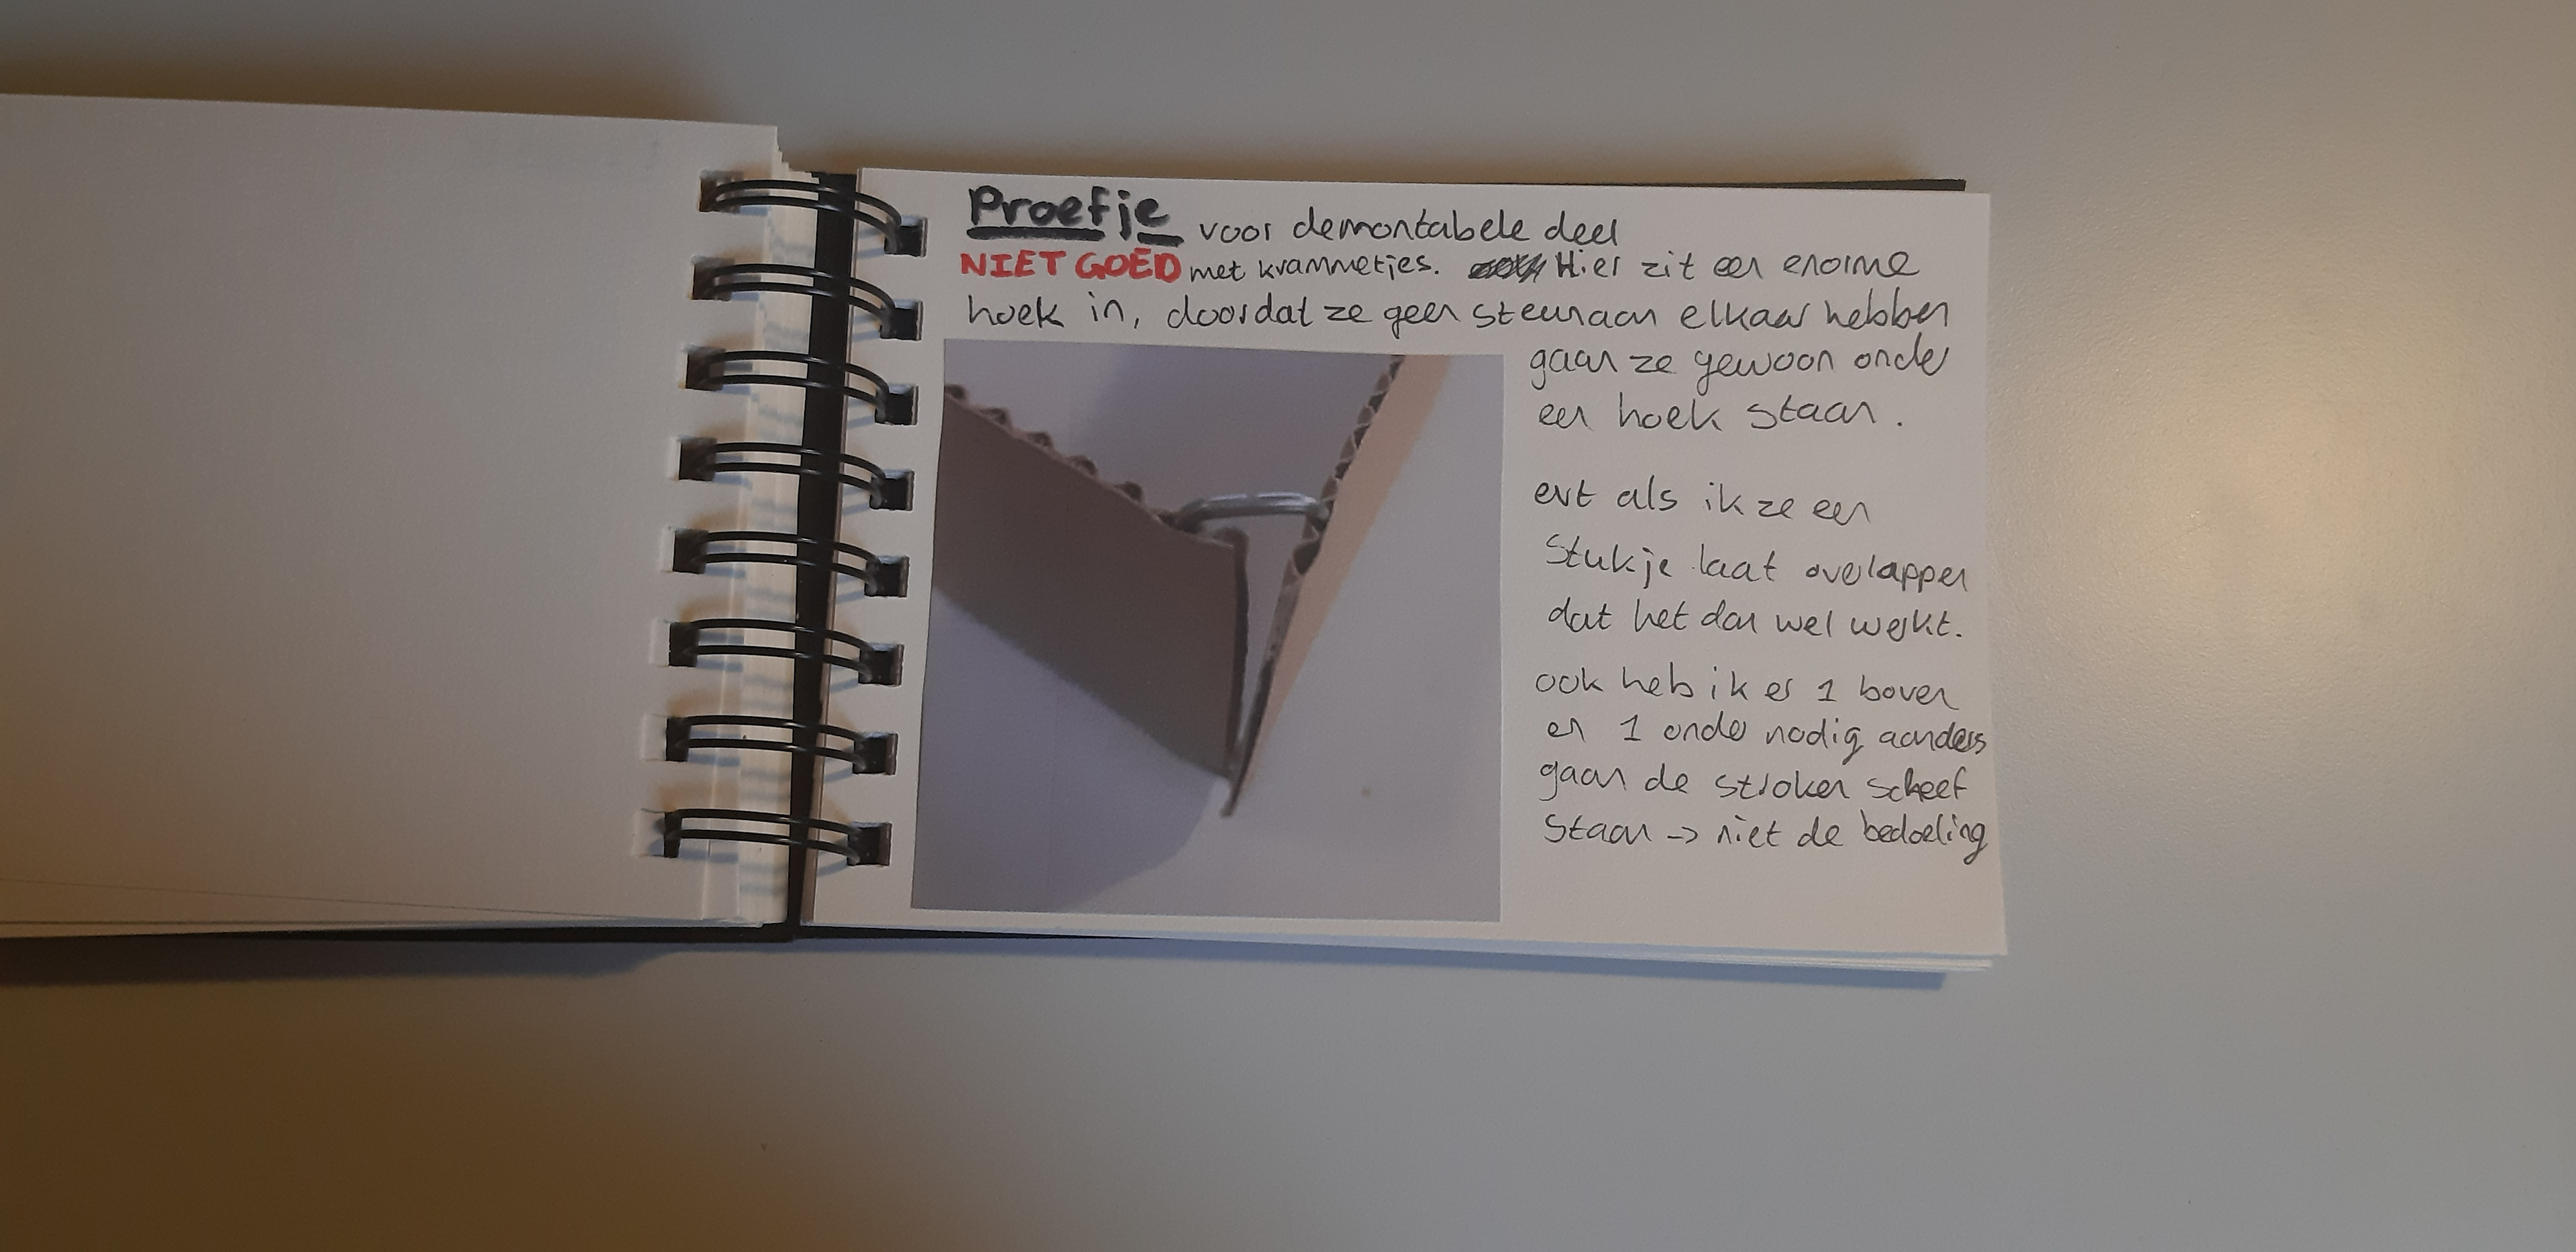 Proefje voor demontabele deel
NIET GOED met krammetjes. Hier zit een enorme
hoek in, doordat ze geen steun aan elkaar hebben
gaan ze gewoon onder
een hoek staan.
evt als ik ze een
stukje laat overlappen
dat het dan wel werkt.
ook heb ik er 1 boven
en 1 onder nodig aanders
gaan de stroken scheef
staan -> niet de bedoeling